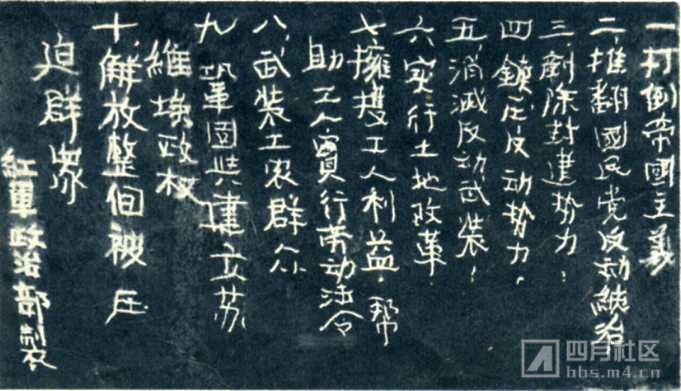 一打倒帝國主義
二.推翻國民党反动統治,
三.剷除封建势力!
四鎮压反动势力.
五.消滅反动武装!
六实行土地改革.
七擁護工人利益.帮
助工人實行劳动法令
八.武装工农群众
九.鞏固共建立苏
維埃政权
十.解放整個被压
迫群众
紅軍政治部製
四月社区
bbs.m4.cn